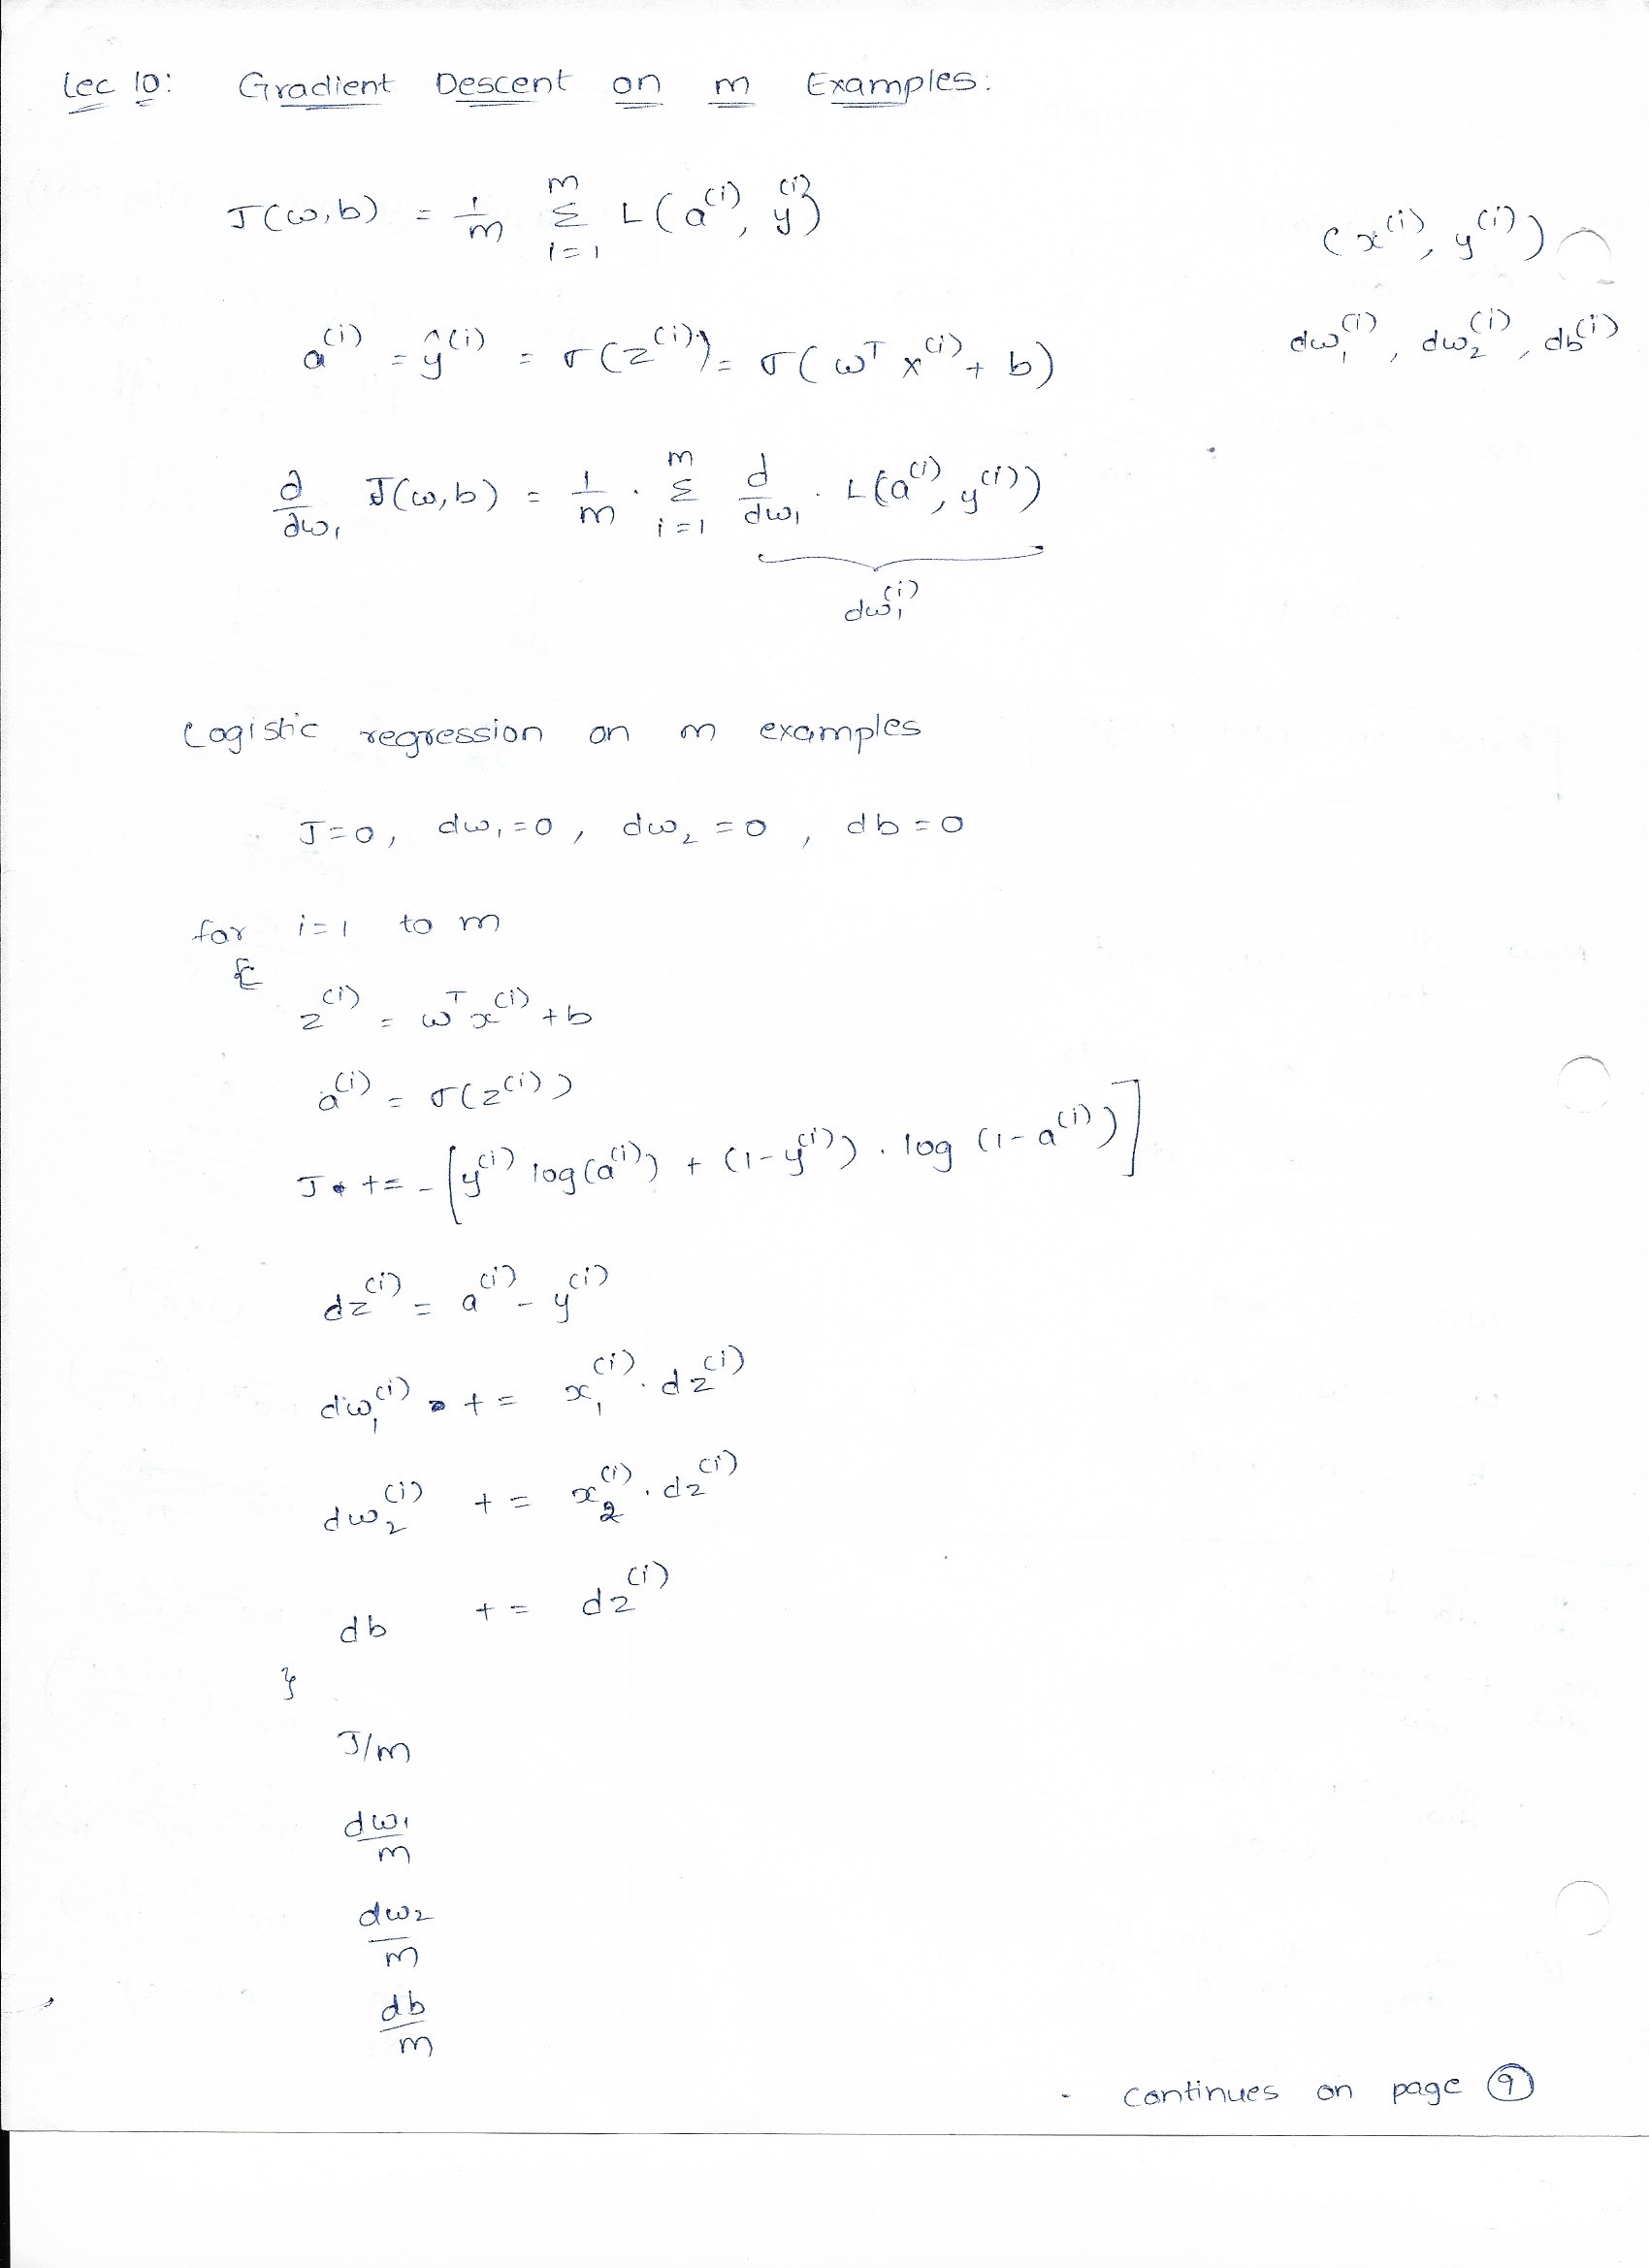 Lec 10: Gradient Descent on m Examples:
J(ω,b) = 1/m Σ_{i=1}^{m} L(a^(i), y^(i))
(x^(i), y^(i))
a^(i) = ŷ^(i) = σ(z^(i)) = σ(ω^T x^(i) + b)
dω₁^(i), dω₂^(i), db^(i)
∂/∂ω₁ J(ω,b) = 1/m · Σ_{i=1}^{m} d/dω₁ · L(a^(i), y^(i))
dω₁^(i)
Logistic regression on m examples
J=0, dω₁=0, dω₂=0, db=0
for i=1 to m
{
z^(i) = ω^T x^(i) + b
a^(i) = σ(z^(i))
J += -[y^(i) log(a^(i)) + (1-y^(i)) · log(1-a^(i))]
dz^(i) = a^(i) - y^(i)
dω₁^(i) += x₁^(i) · dz^(i)
dω₂^(i) += x₂^(i) · dz^(i)
db += dz^(i)
}
J/m
dω₁/m
dω₂/m
db/m
- continues on page 9